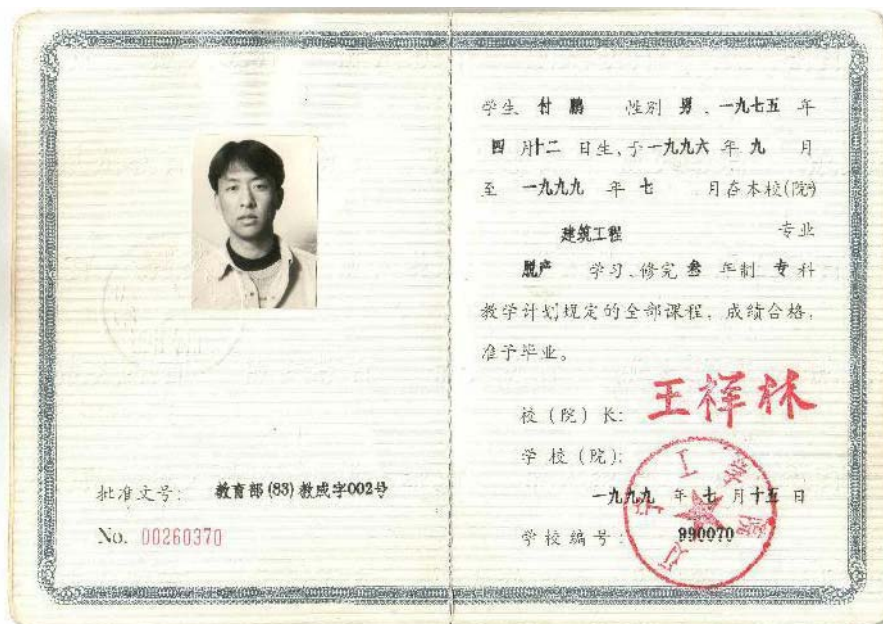 批准文号: 教育部(83)教成字002号
No. 00260370
学生 付鹏 性别 男、一九七五 年
四 月十二 日生、于一九九六 年 九 月
至 一九九九 年 七 月在本校(院)
建筑工程 专业
脱产 学习、修完 叁 年制 专 科
教学计划规定的全部课程, 成绩合格,
准予毕业。
校(院)长: 王祥林
学校(院):
辽宁工学院
一九九九 年 七 月十五 日
学校编号: 990070